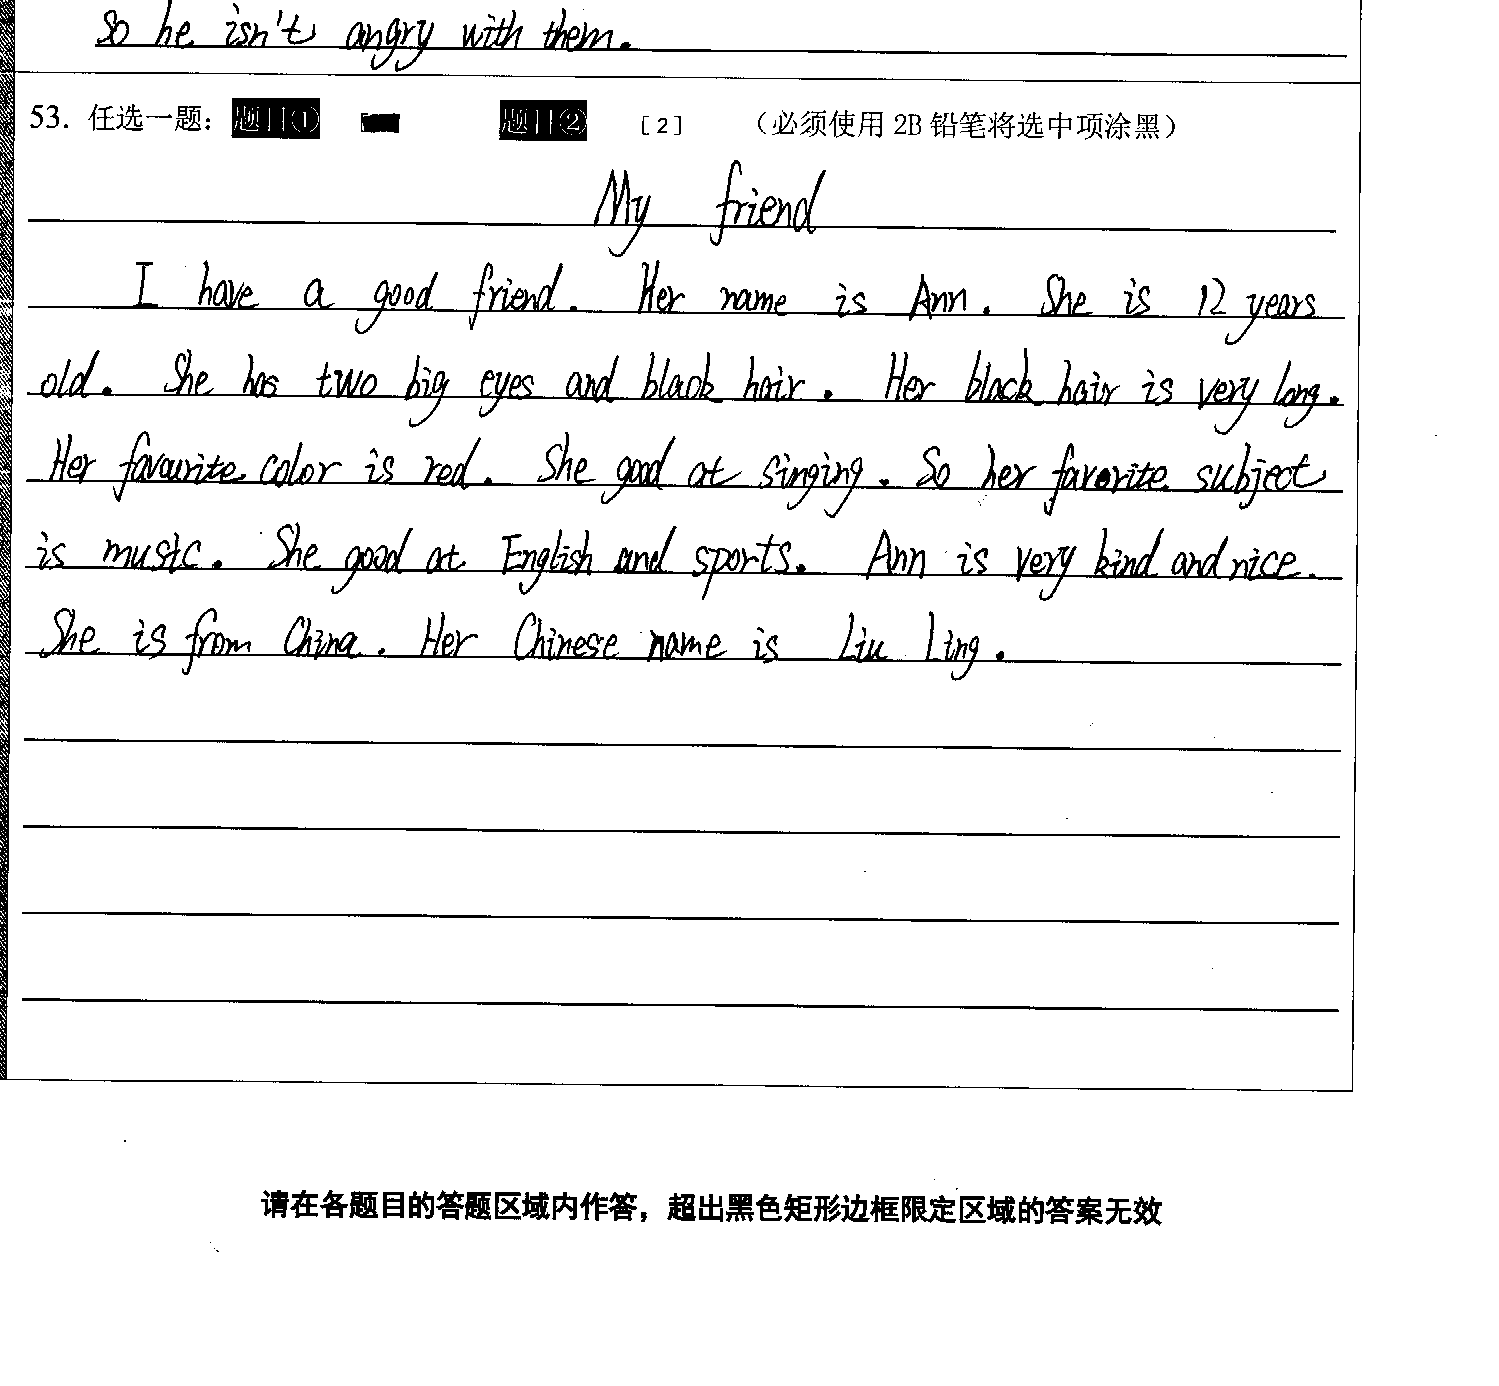 So he isn't angry with them.
53. 任选一题： 题目① 题目② [2] （必须使用 2B 铅笔将选中项涂黑）
My friend
I have a good friend. Her name is Ann. She is 12 years
old. She has two big eyes and black hair. Her black hair is very long.
Her favourite color is red. She good at singing. So her favorite subject
is music. She good at English and sports. Ann is very kind and nice.
She is from China. Her Chinese name is Liu Ling.
请在各题目的答题区域内作答，超出黑色矩形边框限定区域的答案无效